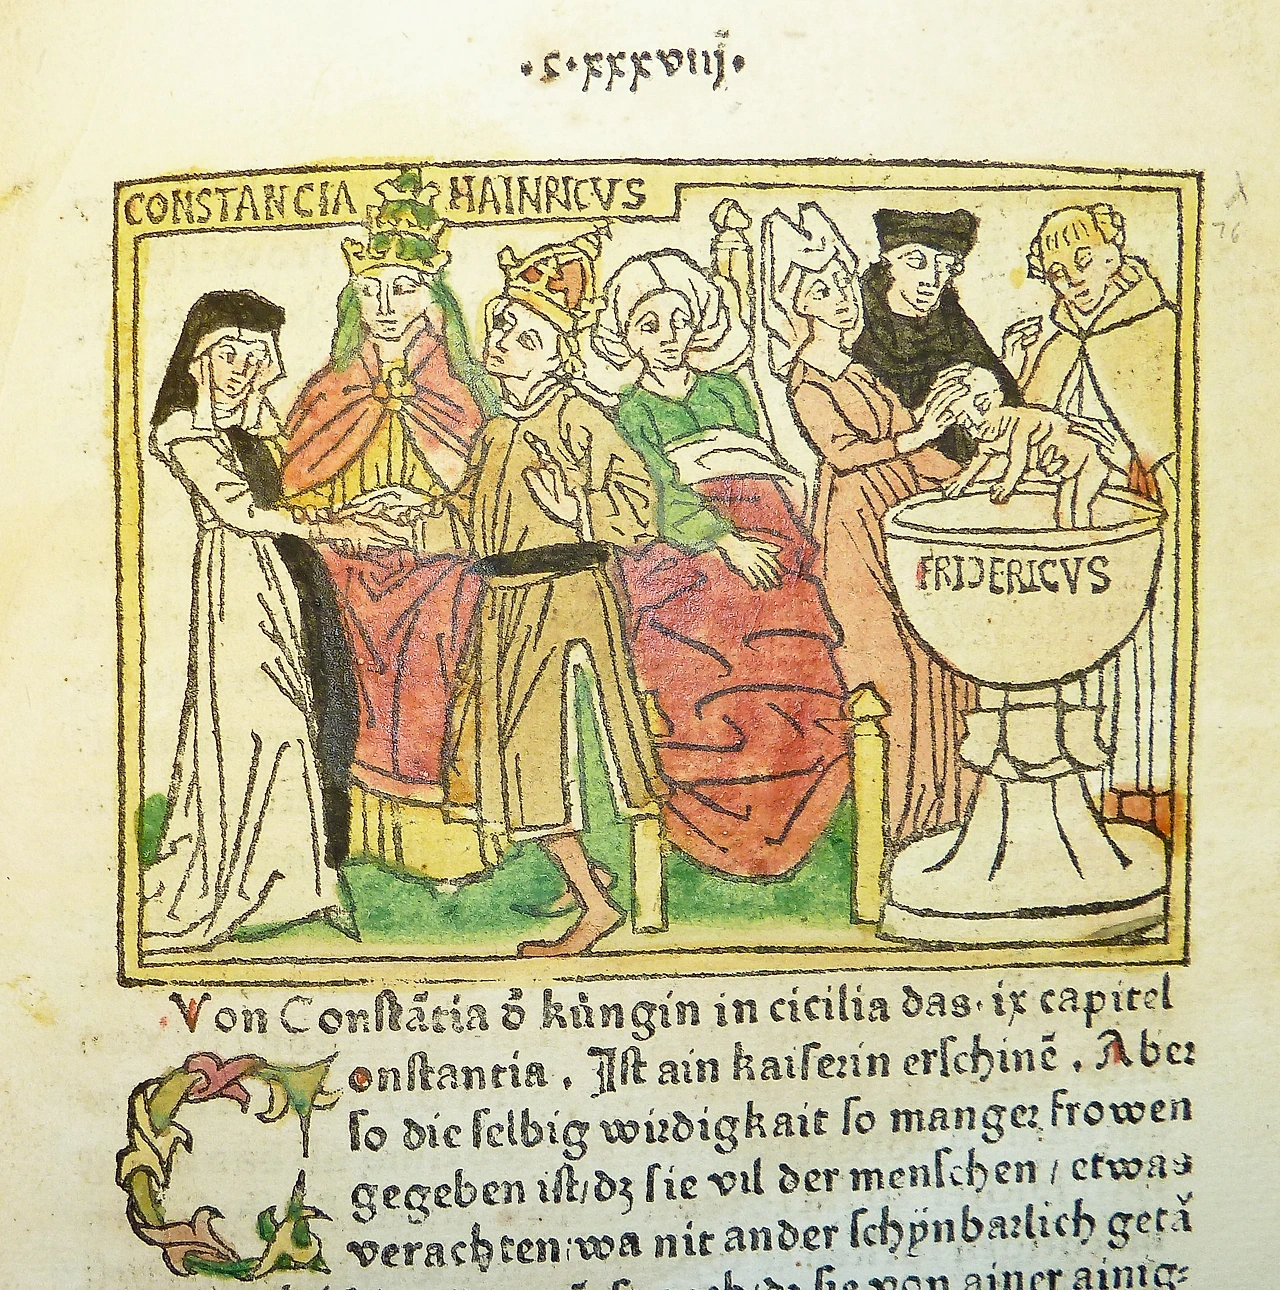 ·c·xxxviiij̃·
CONSTANCIA HAINRICVS
FRIDERICVS
Von Constãtia d̉ kúngin in cicilia das· ix capitel
Constantia . Ist ain kaiserin erschinē . Aber
so die selbig wirdigkait so manger frowen
gegeben ist/dz sie vil der menschen / etwas
verachten:wa nit ander schÿnbarlich getǎ
sie von ainer ainig⸗